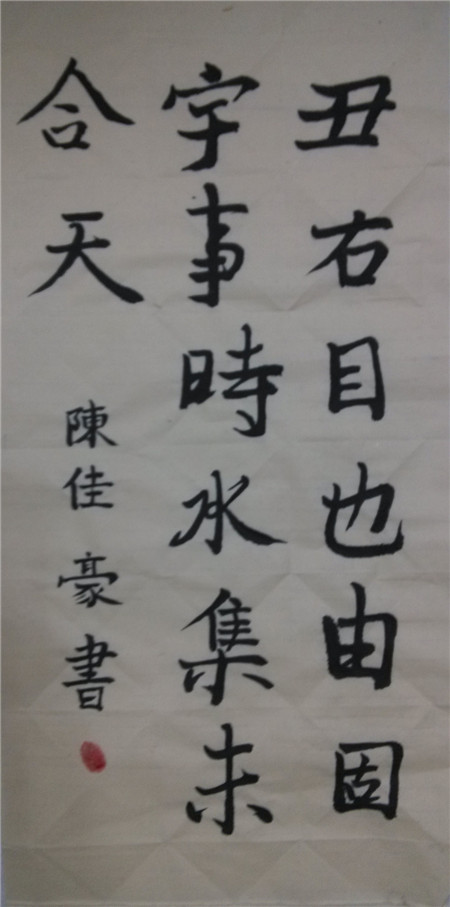 丑右目也由固
字事時水集未
合天
陳佳豪書